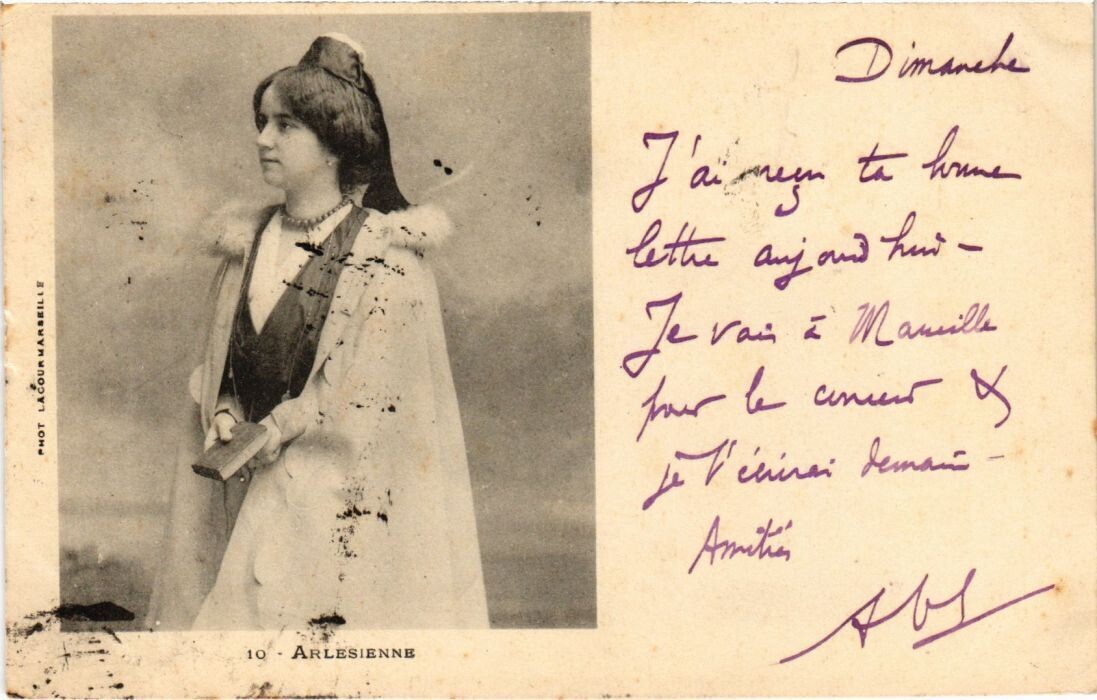 PHOT LACOUR MARSEILLE
10 - ARLESIENNE
Dimanche
J'ai reçu ta bonne
lettre aujourd'hui -
Je vais à Marseille
pour le concert &
je t'écrirai demain -
Amitiés